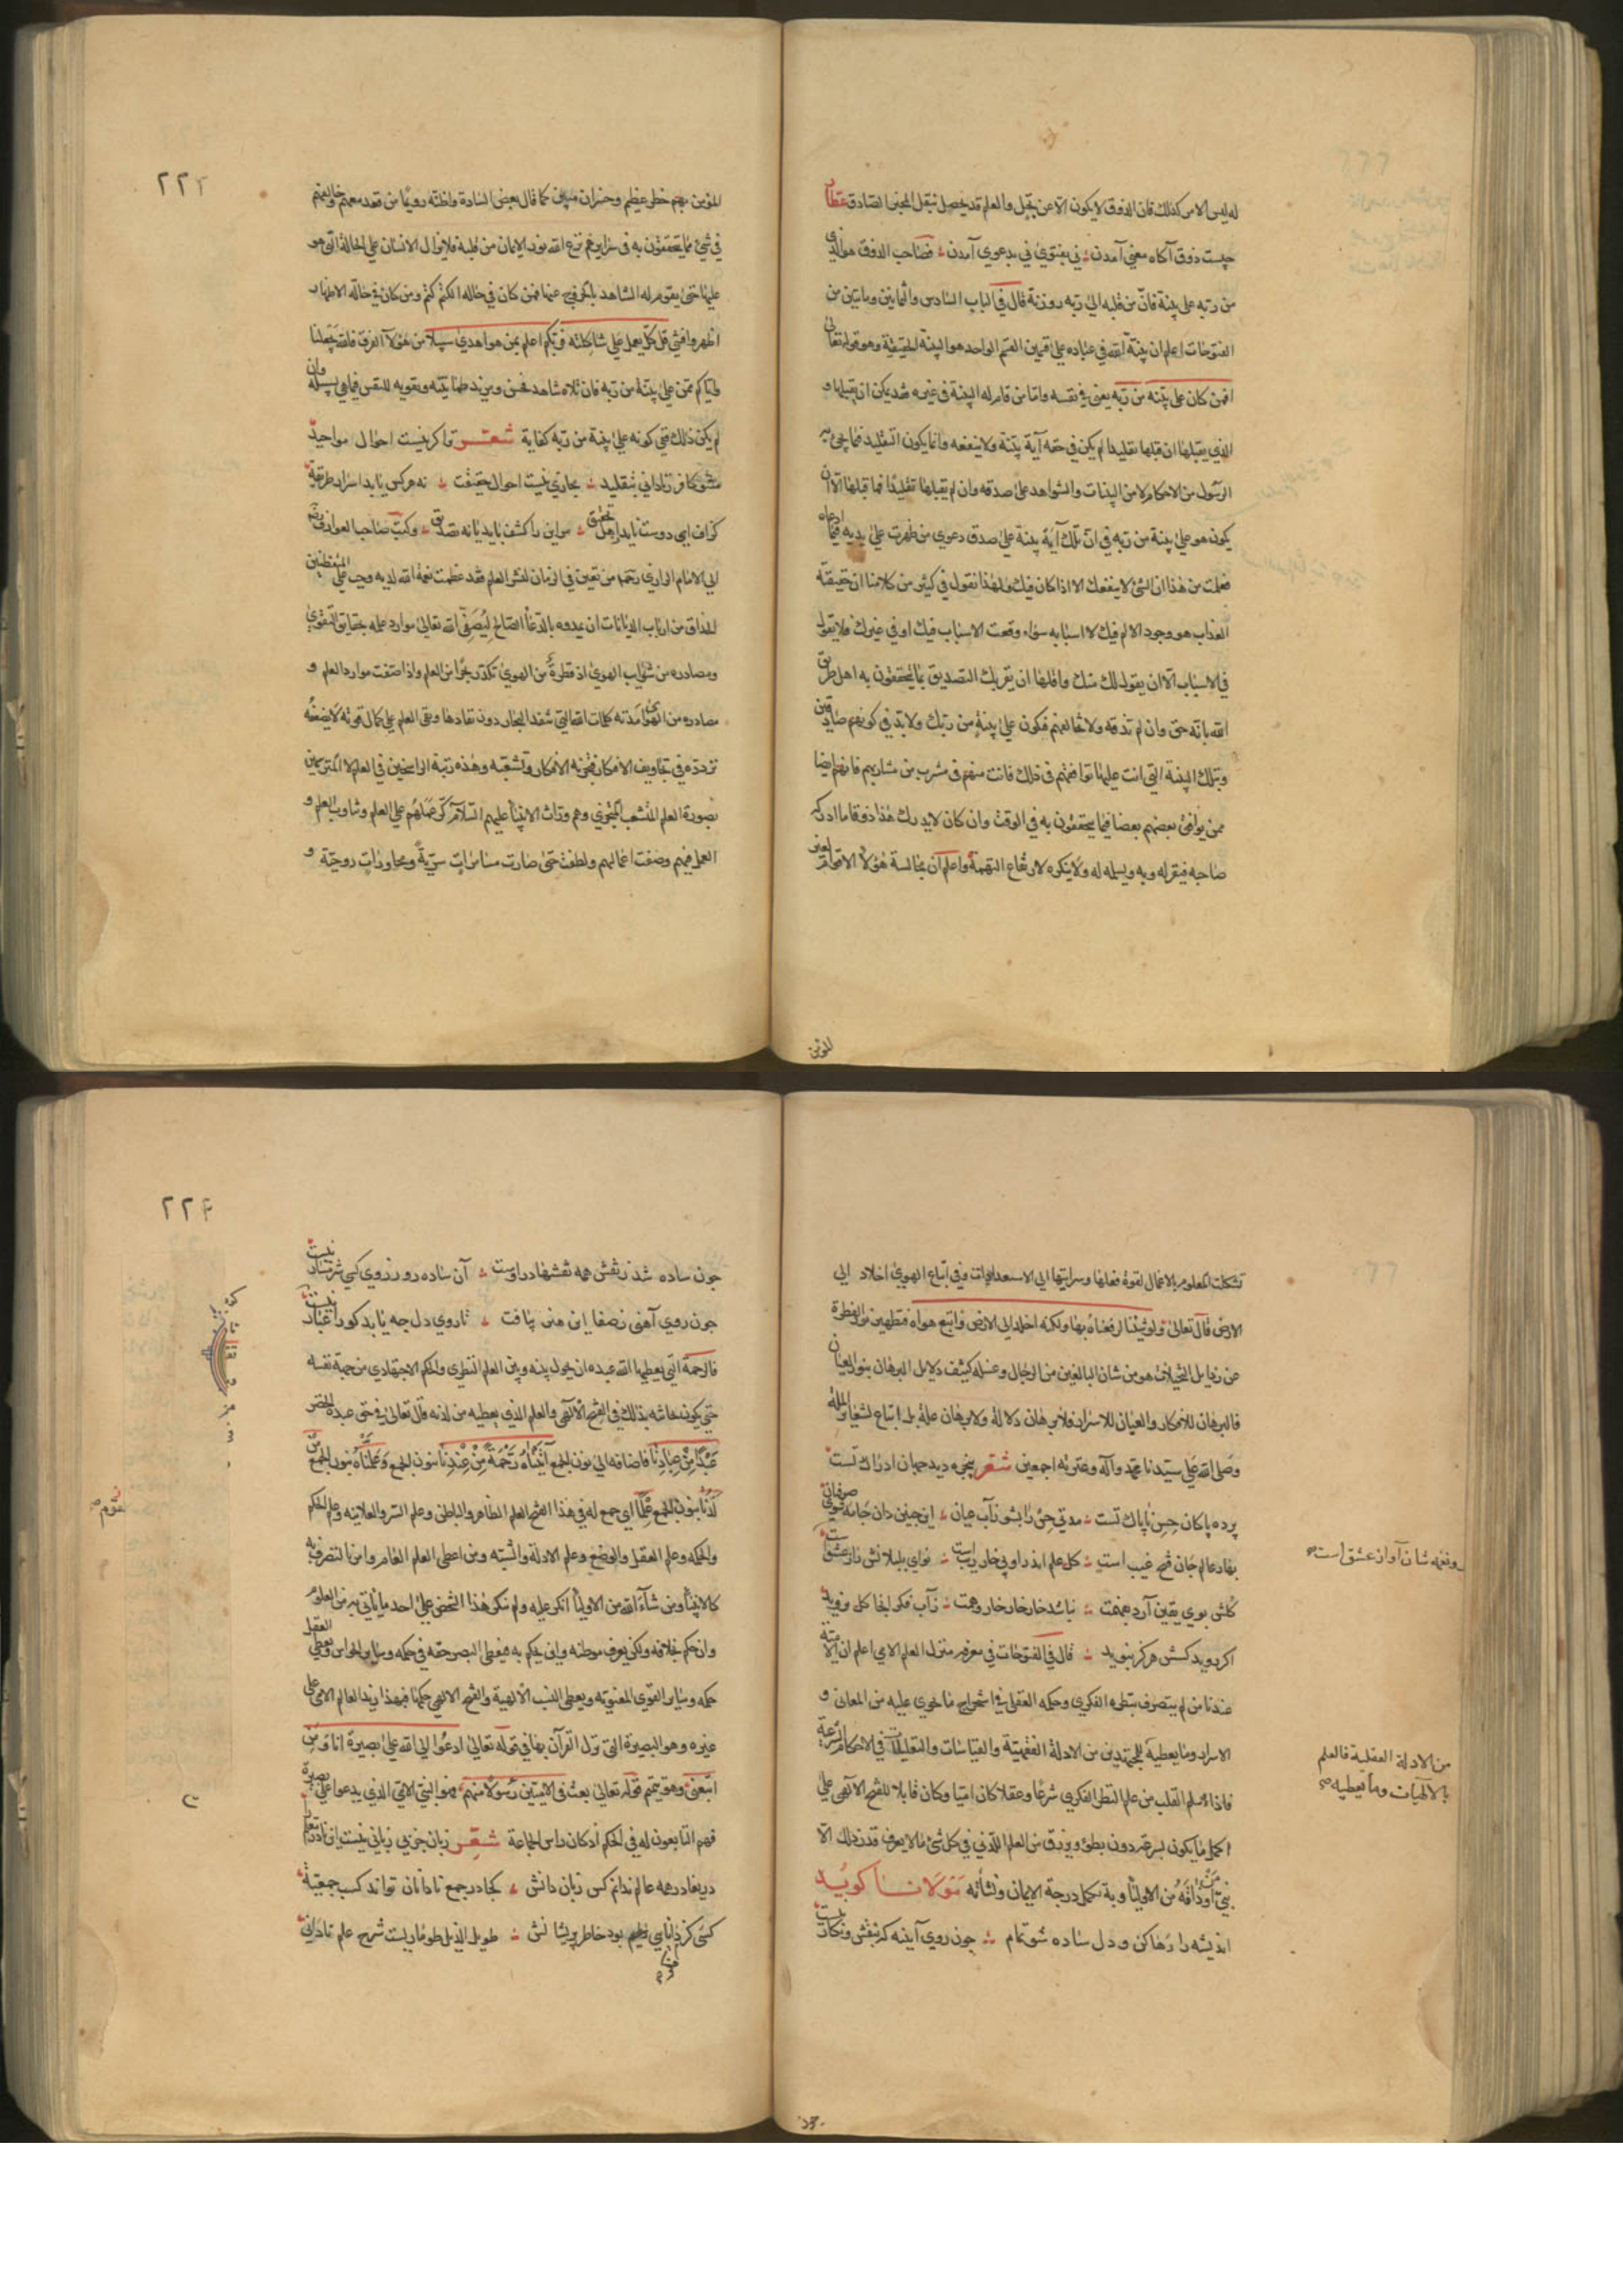 له ليس الامر كذلك فان الذوق لا يكون الا عن تجلٍ والعلم قد يحصل بنقل المخبر الصادق
چيست ذوق آكاه معنى آمدن نى بفتوى نى بدعوى آمدن فصاحب الذوق هو الذى
من ربه على بينة فان من قلبه الى ربه روزنة قال فى الباب السادس والثمانين ومايتين من
الفتوحات اعلم ان بينة الله فى عباده على قسمين القسم الواحد هو البينة الحقيقية وهو قوله تعالى
افمن كان على بينه من ربه يعنى فى نفسه واما من قام له البينة فى غيره فقد يكن ان يقبلها و
الذى يقبلها ان قبلها تقليدا لم يكن فى حقه آية بينة ولا ينفعه وانما يكون التقليد فيما يجئ به
الرسول من الاحكام لا من البينات والشواهد على صدقه وان لم يقبلها تقليدًا فما قبلها الا ان
يكون هو على بينة من ربه فى ان تلك آية بينة على صدق دعوى من ظهرت على يديه فيما ادعاه
فعلمت من هذا ان الشئ لا ينفعك الا اذا كان فيك ولهذا نقول فى كثير من كلامنا ان حقيقة
العذاب هو وجود الالم فيك لا اسبابه سواء وقعت الاسباب فيك او فى غيرك فلا يقول
فى الاسباب الا ان يقول لك منك واقلها ان يقربك التصديق بما يتحققون به اهل طريق
الله بانه حق وان لم تذقه ولا تخالفهم فتكون على بينة من ربك ولابد فى كونهم صادقين
وبتلك البينة التى انت عليها توافقهم فى ذلك فانت منهم فى مشرب من مشاربهم فانهم ايضا
ممن يوافق بعضهم بعضا فيما يتحققون به فى الوقت وان كان لا يدرك هذا ذوقا ما ادركه
صاحبه فيقر له وبه ويسلمه له ولا ينكره لارتفاع التهمة واعلم ان مجالسة هؤلاء الاقوام لغير
المؤمن
٢٢٣
المؤمن بهم خطر عظيم وخسران مبين كما قال بعض السادة واظنه رويمًا من قعد معهم وخالفهم
فى شئ مما يتحققون به فى سرايرهم نزع الله نور الايمان من قلبه فلا يزال الانسان على الحالة التى هو
عليها حتى يقوم له الشاهد بالخروج عنها فمن كان فى حاله الكتم كتم ومن كان فى حاله الاظهار
اظهر وافشى قل كل يعمل على شاكلته فربكم اعلم بمن هو اهدى سبيلا من هؤلاء الفرق فالله يجعلنا
واياكم ممن على بينة من ربه فان تلاه شاهد فحسن ومزيد طمأنينة وتقوية للنفس فيما هى بسبيله وان
لم يكن ذلك ففى كونه على بينة من ربه كفاية شعر ترا كر نيست احوال مواجيد
مشو كافر ز نادانى بتقليد مجازى نيست احوال حقيقت نه هر كس يابد اسرار طريقت
كزاف اى دوست نايد ز اهل تحقيق مر اين را كشف بايد يا نه تصديق وكتب صاحب العوارف
الى الامام الرازى رحمهما من تعين فى الزمان لنشر العلم فقد عظمت نعمة الله لديه وجب على المتيقظين
الحذاق من ارباب الديانات ان يمدوه بالدعاء الصالح ليُصَفّى الله تعالى موارد علمه بحقايق التقوى
ومصادره من شوايب الهوى اذ قطرة من الهوى تكدّر بحرًا من العلم واذا صفت موارد العلم و
مصادره من الهوى امدته كلمات الله التى تنفد البحار دون نفادها ويبقى العلم على كمال قوته لا يضعفه
تردده فى تجاويف الافكار ... وهذه رتبة الراسخين فى العلم لا المترسمين
بصورة العلم ... وهم وراث الانبياء عليهم السلام كرّ عملهم على العلم وتناوب العلم و
العمل فيهم وصفت اعمالهم ولطفت حتى صارت مسامرات سرّية ومحاورات روحيّة و
تشكلت العلوم بالاعمال لقوة فعلها وسرايتها الى الاستعدادات وفى اتباع الهوى اخلاد الى
الارض قال تعالى ولو شئنا لرفعناه بها ولكنه اخلد الى الارض واتبع هواه فتطهير نور الفطرة
عن رذايل التخيلات هو من شان البالغين من الرجال وغسله كثيف دلايل البرهان بنور العيان
فالبرهان للافكار والعيان للاسرار فلا برهان دلالة ولا برهان علة بل اتباع لشعاير الملة
وصلى الله على سيدنا محمد وآله وعترته اجمعين شعر پنجره ديد جهان ادراك تست
پرده پاكان حس ناپاك تست مدتى حس را بشو ز آب عيان اين چنين دان جامه شوى صوفيان
بهار عالم جان فتح غيب است كل علم اندر او بى خار ريب است نواى بلبلانش راز عشق است
ونغمه شان آواز عشق است صح
كلش بوى يقين آرد بهمت نباشد خار خار وهمت ز آب فكر اينجا كل نرويد
اكر رويد كسش هركز نبويد قال فى الفتوحات فى معرفة منزل العلم الامى اعلم ان الامية
عندنا من لم يتصرف بنظره الفكرى وحكمه العقلى فى استخراج ما تحوى عليه من المعانى و
الاسرار وما يعطيه للمجتهدين من الادلة الفقهية والقياسات والتعليلات فى الاحكام الشرعية
من الادلة العقلية فى العلم
بالالهيات وما تعطيه صح
فاذا سلم القلب من علم النظر الفكرى شرعًا وعقلا كان اميًا وكان قابلا للفتح الالهى على
اكمل ما يكون بسرعة دون بطئ ويرزق من العلم اللدنى فى كل شئ ما لا يعرف قدر ذلك الا
نبى او من ذاقه من الاولياء وبه تكمل درجة الايمان ونشأته مولانا كويد
انديشه را رها كن ودل ساده شو تمام چون روى آينه كه بنقش ونكار نيست
چون
٢٢٤
چون ساده شد ز نقش همه نقشها در اوست آن ساده رو ز روى كسى شرمسار نيست
چون روى آهنى ز صفا اين هنر بيافت تا روى دل چه يابد كو را غبار نيست
فالرحمة التى يعطيها الله عبده ان يحول بينه وبين العلم النظرى والحكم الاجتهادى من جهة نفسه
حتى يكون ... بذلك فى الفتح الالهى والعلم الذى يعطيه من لدنه قال تعالى فى حق عبده الخضر
عَبْدًا مِنْ عِبَادِنَا فاضافه الى نون الجمع آتَيْنَاهُ رَحْمَةً مِنْ عِنْدِنَا بنون الجمع وَعَلَّمْنَاهُ بنون الجمع مِنْ
لَدُنَّا بنون الجمع عِلْمًا اى جمع له فى هذا الفتح العلم الظاهر والباطن وعلم السر والعلانيه وعلم الحكم
والحكمه وعلم العقل والوضع وعلم الادلة والشبه ومن اعطى العلم العام وامر بالتصرف به
كالانبياء ومن شاء الله من الاولياء انكر عليه ولم ينكر هذا الشخص على احد ما يأتى به من العلوم
وان حكم بخلافه ولكن يعرف موطنه واين يحكم به فيعطى البصر حقه فى حكمه وساير الحواس ويعطى العقل
حكمه وساير القوى المعنويه ويعطى النسب الالهية والفتح الالهى حكمها فبهذا يزيد العالم الامى على
غيره وهو البصيرة التى نزل القرآن بها فى قوله تعالى ادعوا الى الله على بصيرة انا ومن
اتبعنى وهو تتميم قوله تعالى بعث فى الاميين رسولا منهم فهو النبى الامى الذى يدعوا على بصيرة
فهم التابعون له فى الحكم اذ كان راس الجماعة شعر
دريغا در همه عالم ندانم كس زبان دانش كجا در جمع نادانان تواند كسب جمعيت
كسى كز ... بود خاطر پريشانش طويل الذيل طوماريست شرح علم نادانى